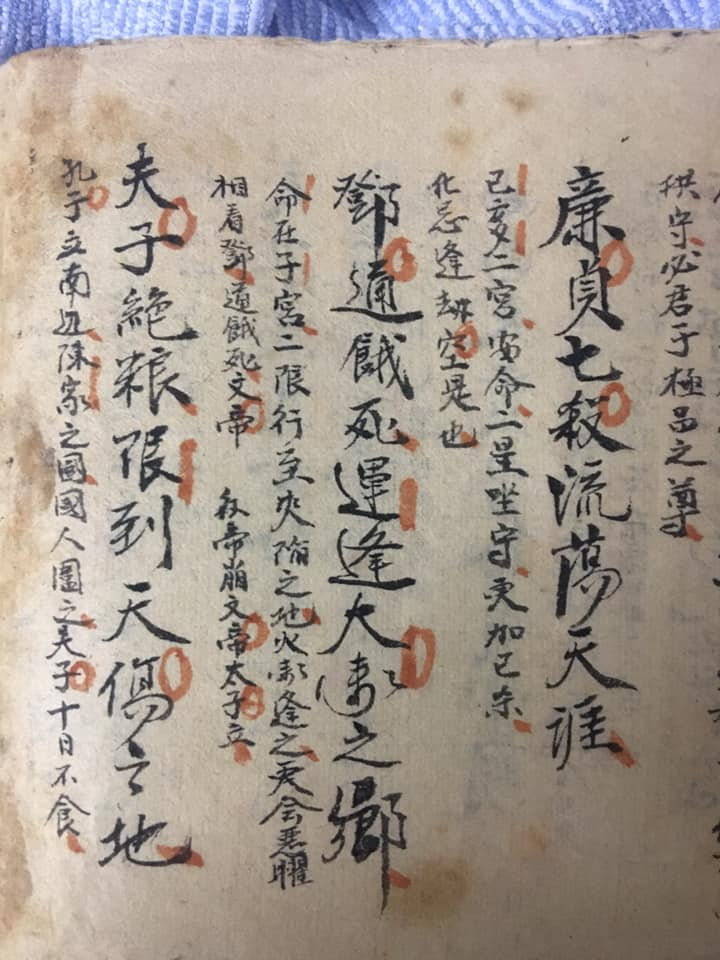 拱守必君于極品之尊
廉貞七殺流蕩天涯
已亥二宮安命二星坐守更加已杀
化忌逢劫空是也
鄧通餓死運逢大耗之鄉
命在子宮二限行至夾陷之地火耗逢之更会悪曜
相看鄧通餓死文帝 帝崩文帝太子立
夫子絕粮限到天傷之地
孔子立南陳家之國國人圍之夫子十日不食